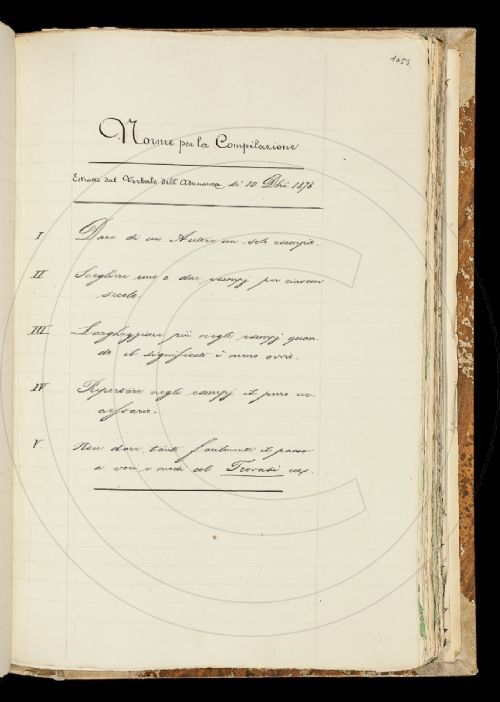 1053
Norme per la Compilazione
Estratto dal Verbale dell'Adunanza, de' 10 Xbre 1878
I Dare di un Autore un solo esempio.
II Scegliere uno o due esempj per ciascun
secolo.
III Largheggiare più negli esempj quan-
do il significato è meno ovvio.
IV Riportare negli esempj il puro ne-
cessario.
V Non dare tanto facilmente il passo
a voci o modi col Trovasi ecc.